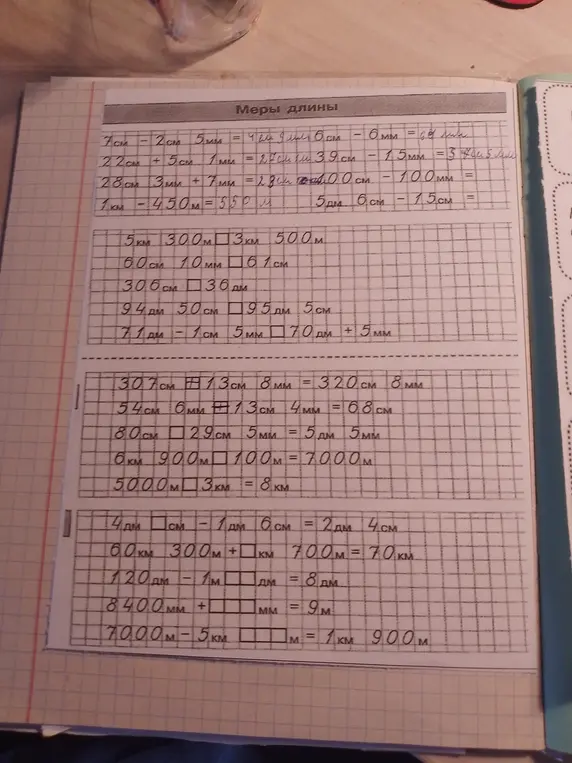 Меры длины
7см - 2см 5мм = 6см - 6мм =
22см + 5см 1мм = 39см - 15мм = 37см 5мм
28см 3мм + 7мм = 100см - 100мм =
1км - 450м = 550 м 5дм 6см - 15см =
5км 300м □ 3км 500м
60см 10мм □ 61см
306см □ 36дм
94дм 50см □ 95дм 5см
71дм - 1см 5мм □ 70дм + 5мм
307см + 13см 8мм = 320см 8мм
54см 6мм + 13см 4мм = 68см
80см □ 29см 5мм = 5дм 5мм
6км 900м □ 100м = 7000м
5000м □ 3км = 8км
4дм □см - 1дм 6см = 2дм 4см
60км 300м + □км 700м = 70км
120дм - 1м □□дм = 8дм
8400мм + □□□мм = 9м
7000м - 5км □□□м = 1км 900м